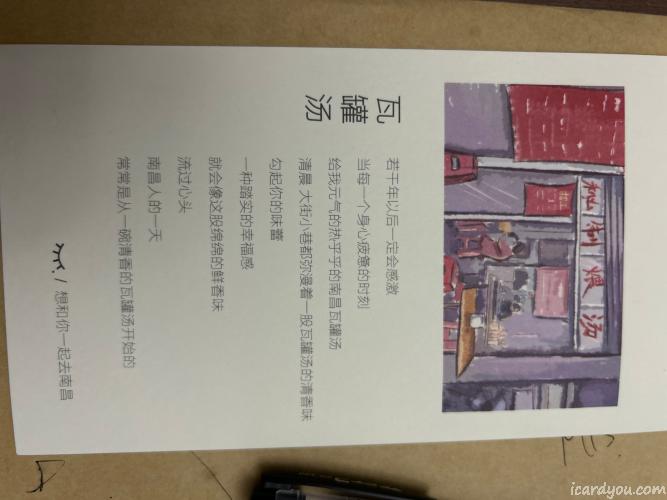 秘制煨汤
瓦罐汤
若干年以后一定会感激
当每一个身心疲惫的时刻
给我元气的热乎乎的南昌瓦罐汤
清晨 大街小巷都弥漫着一股瓦罐汤的清香味
勾起你的味蕾
一种踏实的幸福感
就会像这股绵绵的鲜香味
流过心头
南昌人的一天
常常是从一碗清香的瓦罐汤开始的
/ 想和你一起去南昌
icardyou.com